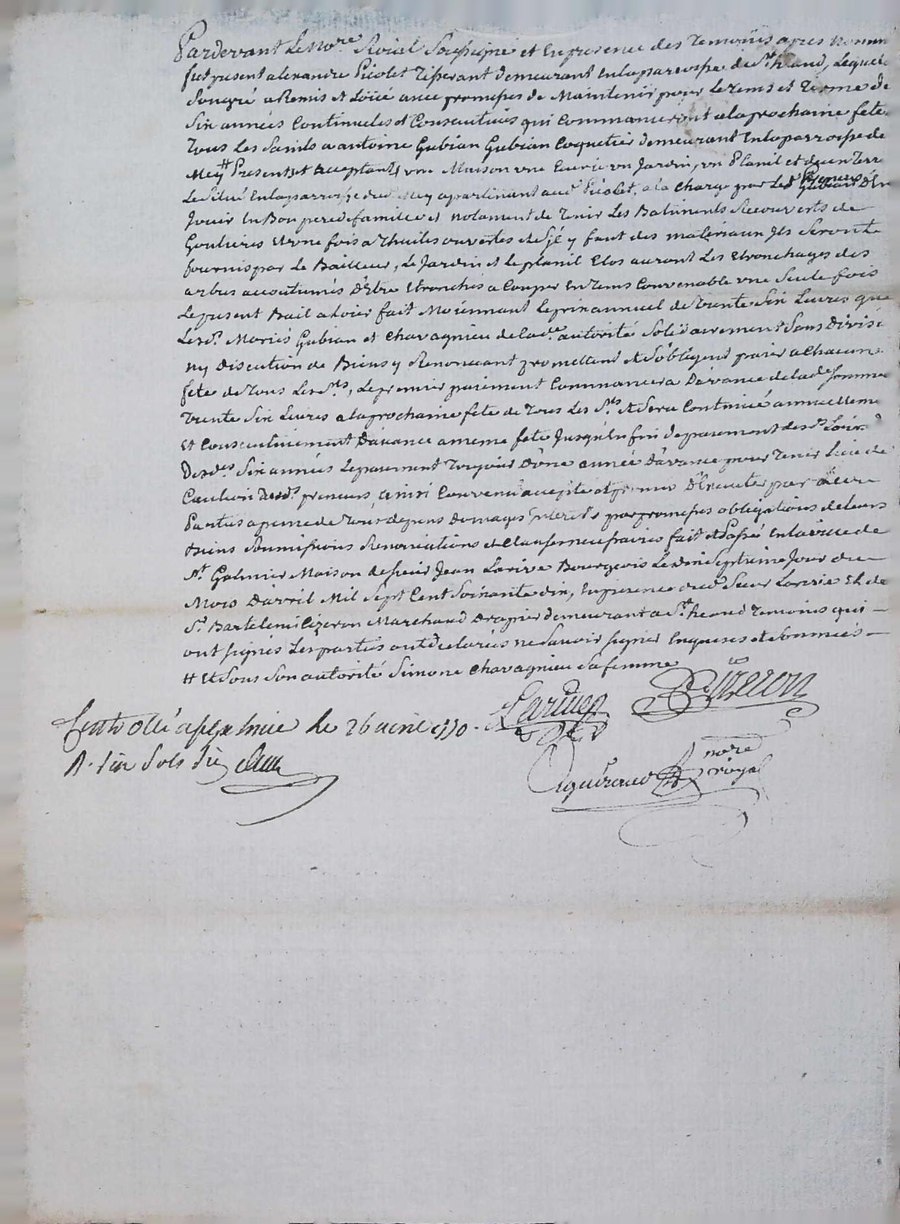 Pardevant Le No.re Roial Soussigné et En presence des Temoins apres nommé
fut present alexandre Picolet Tisserant demeurant En la parroisse de St heand, Lequel
De son gré a Remis et Loüé avec promesses de Maintenir pour Le tems et Terme de
Six années Continueles et Consecutives qui Commanceront a la prochaine fete
Tous Les Saints a antoine Gubian Gubian Coquetier demeurant En la parroisse de
Mey # Present et acceptant, une Maison une Ecurie un Jardin, un Planil et du en Terre
Le Situé En la parroisse dud Mey apartenant aud Picolet, a la Charge par Led Gubian D'En
Jouir En Bon pere de famille et notament de Tenir Les Batiments Recouverts de
Goutieres et une fois a Thuiles ouvertes et S'il y faut des materiaux Ils Seront
fournis par Le Bailleur, Le Jardin et le planil Clos auront Les Etronchages des
arbres accoutumés D'Etre Etronchés a Couper En tems Convenable une Seule fois
Le present Bail a Loier fait Moienant Le prix annuel de Trente Six Livres que
Les d. Mariés Gubian et Chavagnieu de lad.e autorité Solidairement Sans Division
ny Discution de Biens y Renoncant promettent et S'obligent paier a Chacune
fete de Tous Les Sts, Le premier paiement Commancera D'avance de lad.e Somme
Trente Six Livres a la prochaine fete de Tous Les Sts et Sera Continué annuellement
Et Consecutivement D'avance a meme fete Jusqu'En fin de paiement des
Desd.es Six années Le paiement Toujour D'une année D'avance pour Tenir Lieu de
Caution desd. preneurs ainsi Convenu accepté et promis D'Executer par Les
Parties a peine de Tous depens Domages Interets par promesses obligations de Leurs
Biens Soumissions Renonciations et Clauses necessaires fait et Passé En la ville de
St Galmier Maison de Sieur Jean Larive Bourgeois Le dix Septieme Jour du
Mois D'avril Mil Sept Cent Soixante dix, En presence dud Sieur Larive Et de
Sr Bartelemi Cizeron Marchand Drapier demeurant a St heand Temoins qui
ont Signés Les parties ont declarés ne Savoir Signer Enquises et Sommées
# Et Sous Son autorité Simone Chavagnieu Sa femme
Larive Cizeron
Controllé a St Galmier le 26 avril 1770.
R. Six Sols Six
nore
royal